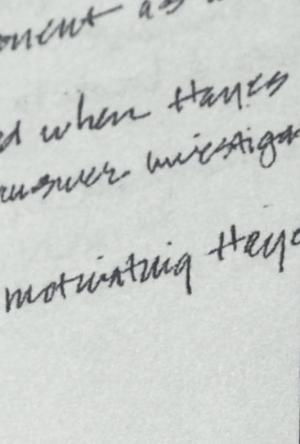 onent as
d when Hayes
answer investiga
motivating Haye